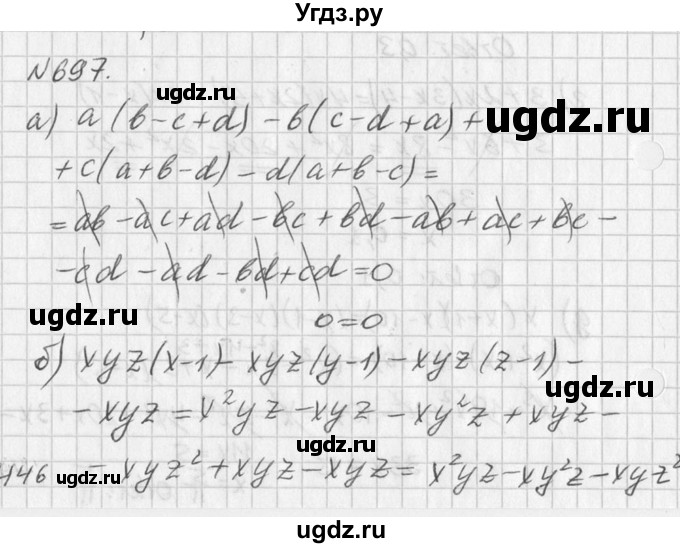 Угдз.ру
№697.
ugdz.ru
а) a(b-c+d) - b(c-d+a) +
ugdz.ru
+ c(a+b-d) - d(a+b-c) =
= ab - ac + ad - bc + bd - ab + ac + bc -
- cd - ad - bd + cd = 0
ugdz.ru
0=0
ugdz.ru
б) xyz(x-1) - xyz(y-1) - xyz(z-1) -
ugdz.ru
- xyz = x²yz - xyz - xy²z + xyz -
ugdz.ru
446 - xyz² + xyz - xyz = x²yz - xy²z - xyz²
ugdz.ru